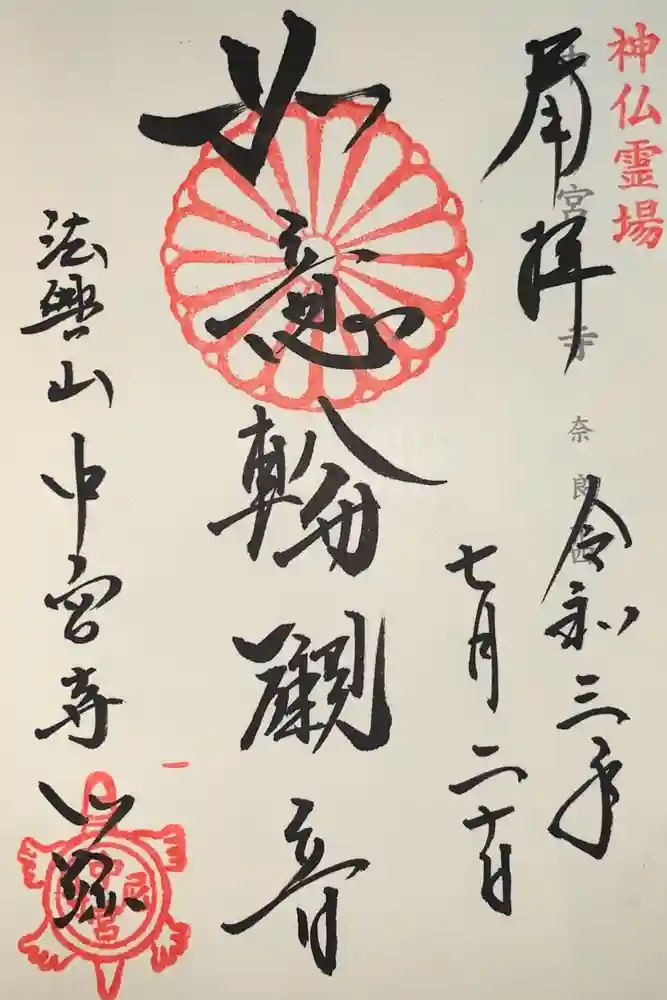 神仏霊場
中宮寺 奈良
奉拝
令和三年
七月二十日
如意輪観音
法興山中宮寺